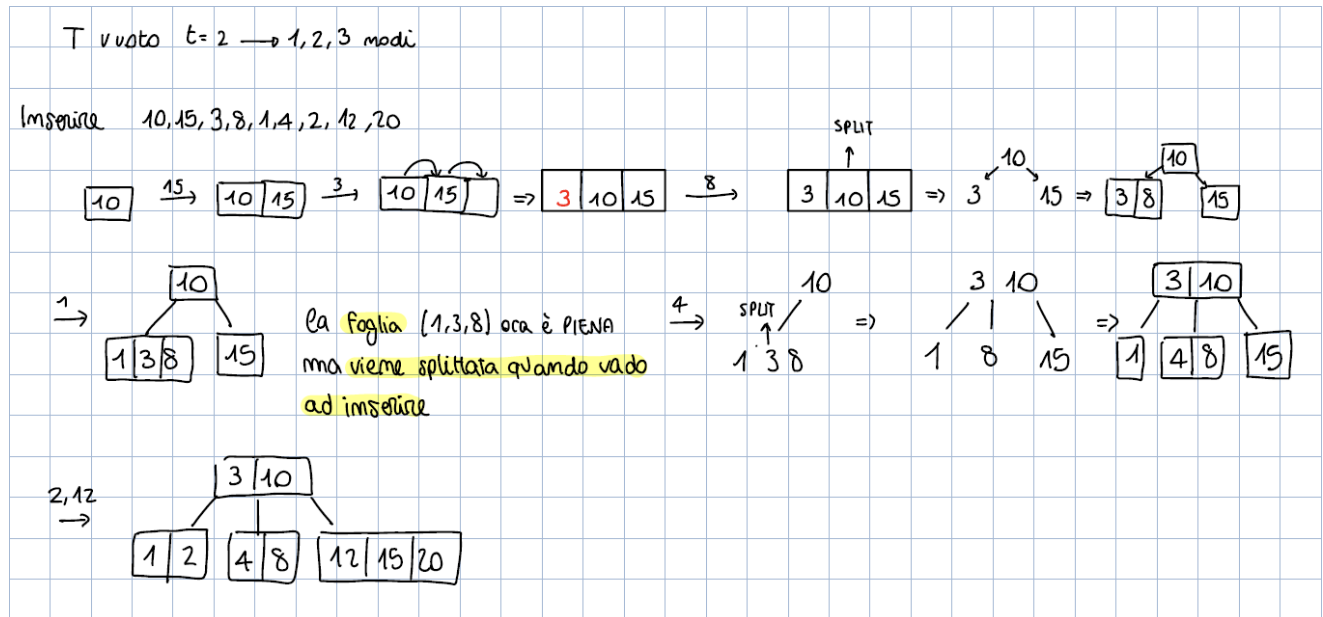 T vuoto t=2 → 1,2,3 nodi
Inserire 10,15,3,8,1,4,2,12,20
SPLIT
10 15→ 10 15 3→ 10 15 ⇒ 3 10 15 8→ 3 10 15 ⇒ 10 3 15 ⇒ 10 3 8 15
1→ 10
1 3 8 15
la foglia (1,3,8) ora è PIENA
ma viene splittata quando vado
ad inserire
4→ SPLIT 10
1 3 8
⇒ 3 10
1 8 15
⇒ 3 10
1 4 8 15
2,12→ 3 10
1 2 4 8 12 15 20